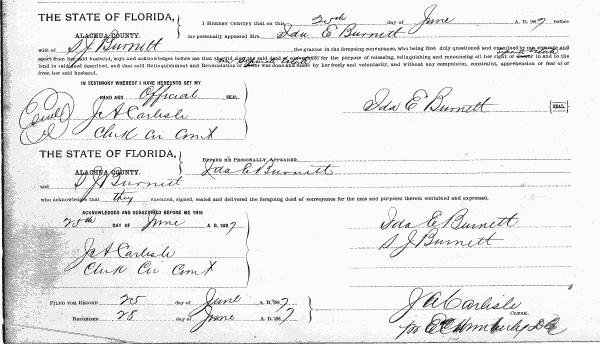 THE STATE OF FLORIDA,
ALACHUA COUNTY.
I HEREBY CERTIFY that on this 25th day of June A. D. 1887 before
me personally appeared Mrs. Ida E Burnett
wife of S J Burnett the grantor in the foregoing conveyance, who being first duly questioned and examined by me separate and
apart from her said husband, says and acknowledges before me that she did sign the said deed of conveyance for the purpose of releasing, relinquishing and renouncing all her right of dower in and to the
land in said deed described, and that such said Relinquishment and Renunciation of dower was done and made by her freely and voluntarily, and without any compulsion, constraint, apprehension or fear of or
from her said husband.
IN TESTIMONY WHEREOF I HAVE HEREUNTO SET MY
HAND AND Official SEAL
J A Carlisle
Clerk Cir Court
Ida E Burnett
SEAL.
THE STATE OF FLORIDA,
ALACHUA COUNTY.
BEFORE ME PERSONALLY APPEARED
Ida E Burnett
and S J Burnett
who acknowledges that they executed, signed, sealed and delivered the foregoing deed of conveyance for the uses and purposes therein contained and expressed.
ACKNOWLEDGED AND SUBSCRIBED BEFORE ME THIS
25th DAY OF June A. D. 1887
Ida E Burnett
S J Burnett
J A Carlisle
Clerk Cir Court
FILED FOR RECORD 25 day of June A. D. 1887
RECORDED 28 day of June 1887
J A Carlisle
CLERK.